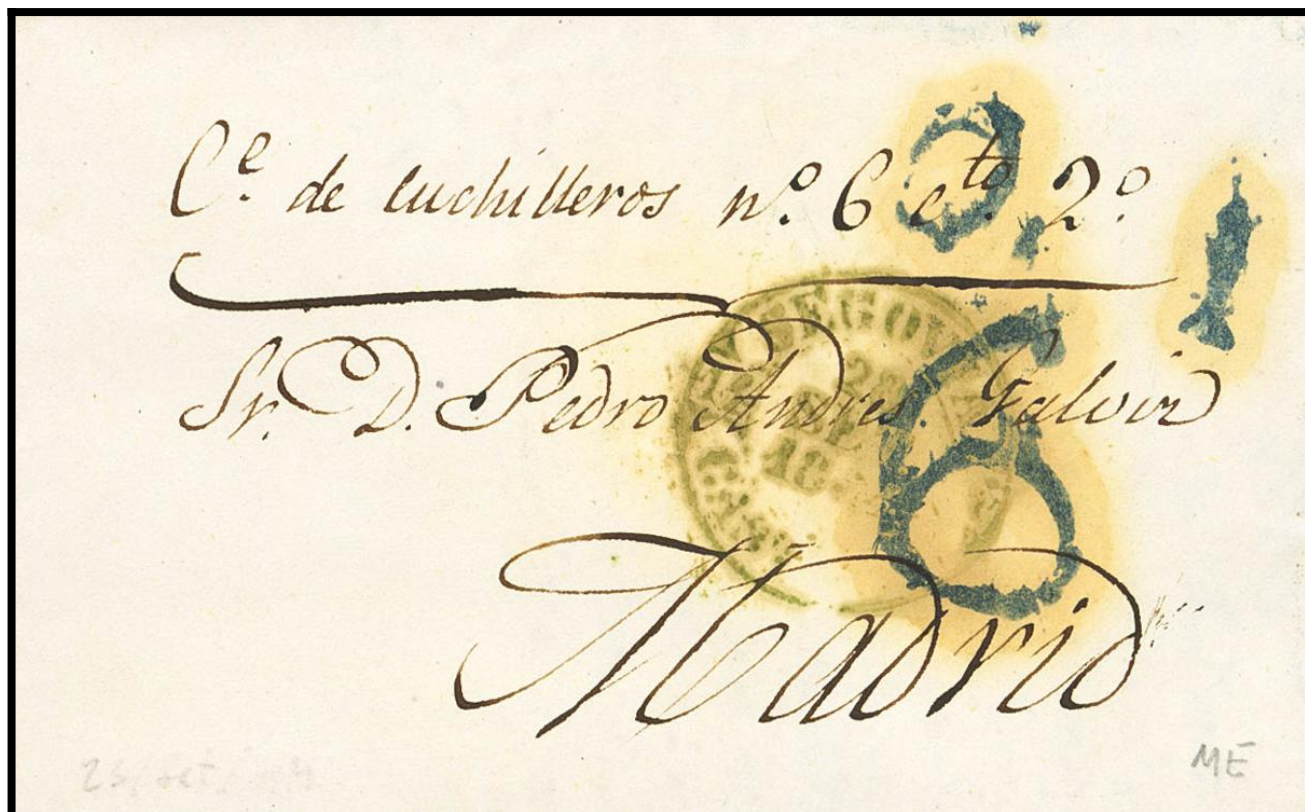 C.e de cuchilleros n.o 6 c.to 2.o
Sr. D. Pedro Andres Galvin
Madrid
SEGOVIA
6
ME